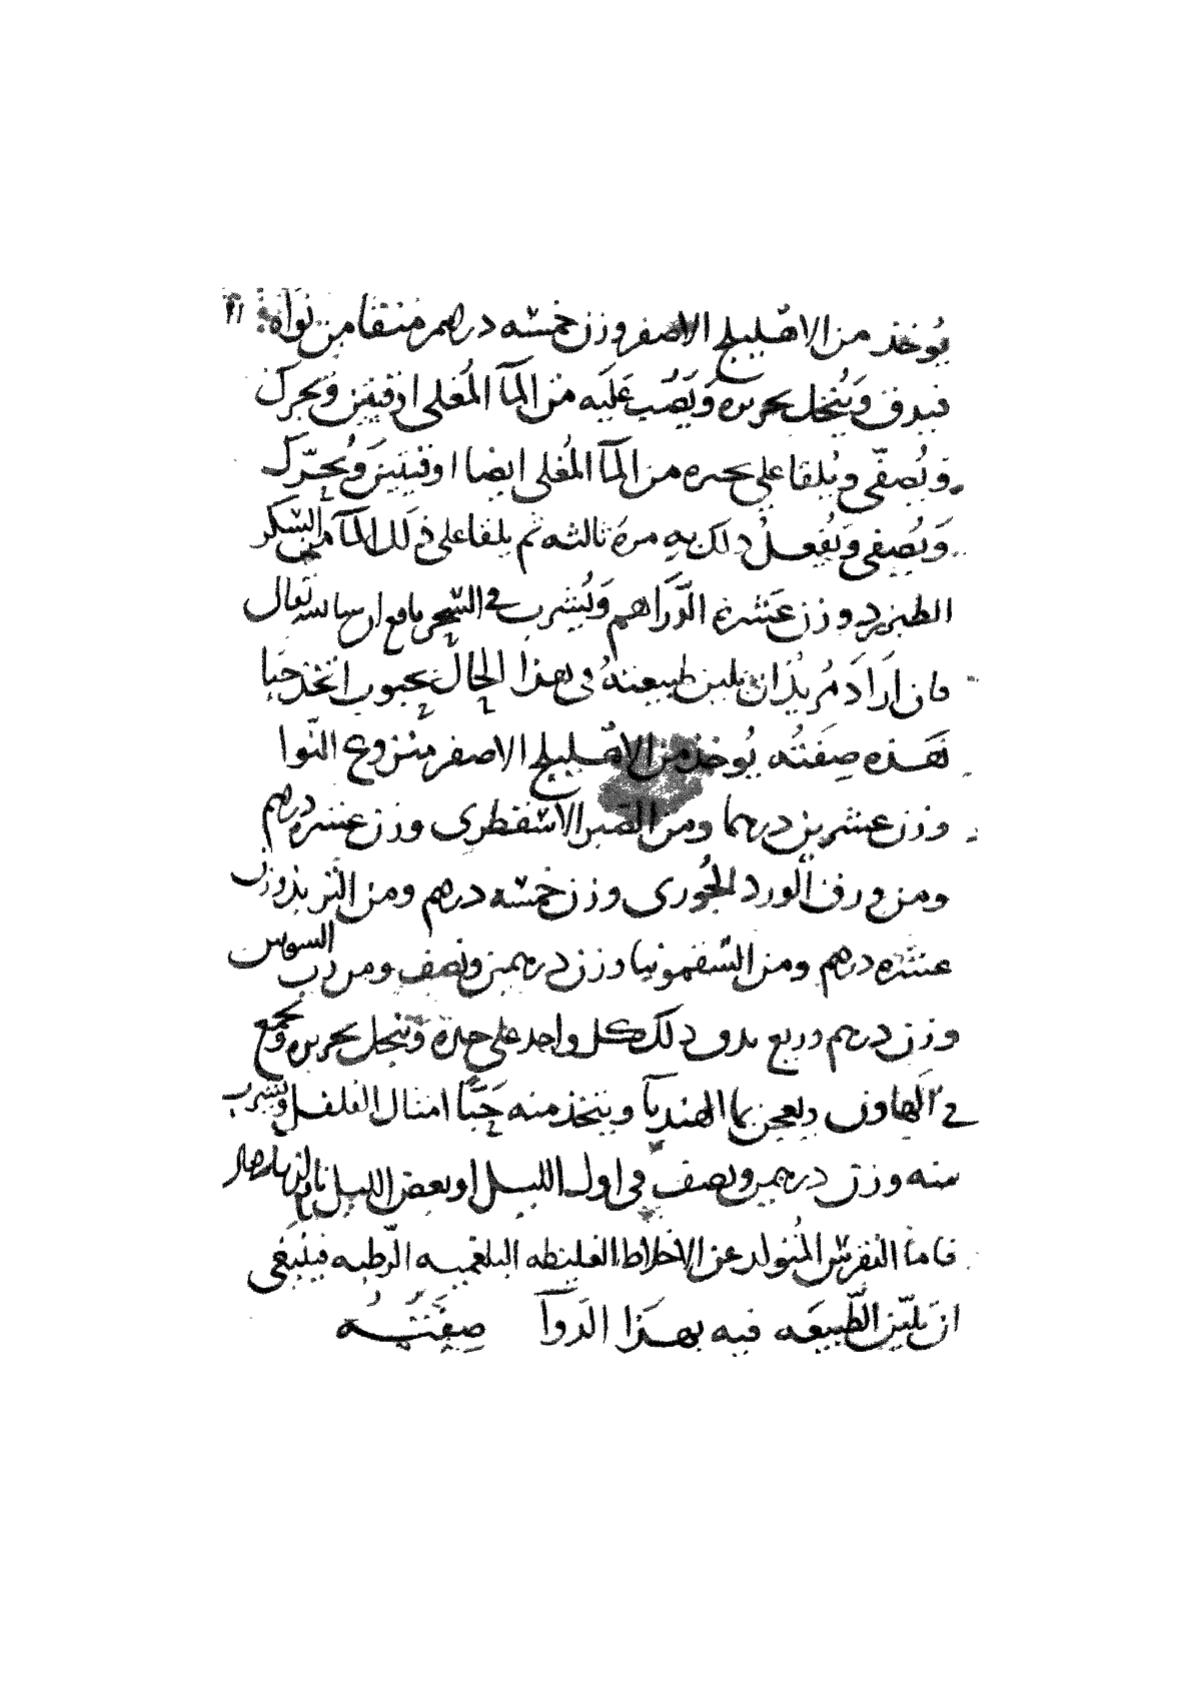 يُوخذ من الاهليلج الاصفر وزن خمسه درهم منقا من نواه
فيدق ويُنخل بحريره ويَصُب عَليه من المآ المُغلى اوقيتين ويحرك
ويُصفّى ويُلقا على بحيره من المآ المُغلى ايضا اوقيتين ويُحرّك
ويُصفى ويُفعل ذلك به مرة ثالثه ثم يلقا على ذلك المآ من السكر
الطبرزد وزن عشرة الدَّرَاهم ويُشرب في السَّحر نافع ان شا الله تعالى
فان اراد مُريدٌ ان يلين طبيعتهُ في هذا الحال بحبوب اتخذ حبا
فهذه صِفَتُه يُوخذ من الاهليلج الاصفر منزوع النّوا
وزن عشرين درهما ومن الصبر الاسقطرى وزن عشره درهم
ومن ورق الورد الجُورى وزن خمسه درهم ومن التربذ وزن
عشره درهم ومن السّقمونيا وزن درهمين ونصف ومن رب السوس
وزن درهم وربع يدق ذلك كل واحد على حدة وينخل بحريره ويجمع
في الهاون ويعجن بما الهندبآ ويتخذ منه حَبًّا امثال الفلفل ويشرب
منه وزن درهمين ونصف في اول الليل او بعض الليل نافع
فاما النقرس المُتولد عن الاخلاط الغليظه البلغميه الرّطبه فينبغى
ان يليّن الطّبيعَه فيه بهذا الدوآ صِفَتُه